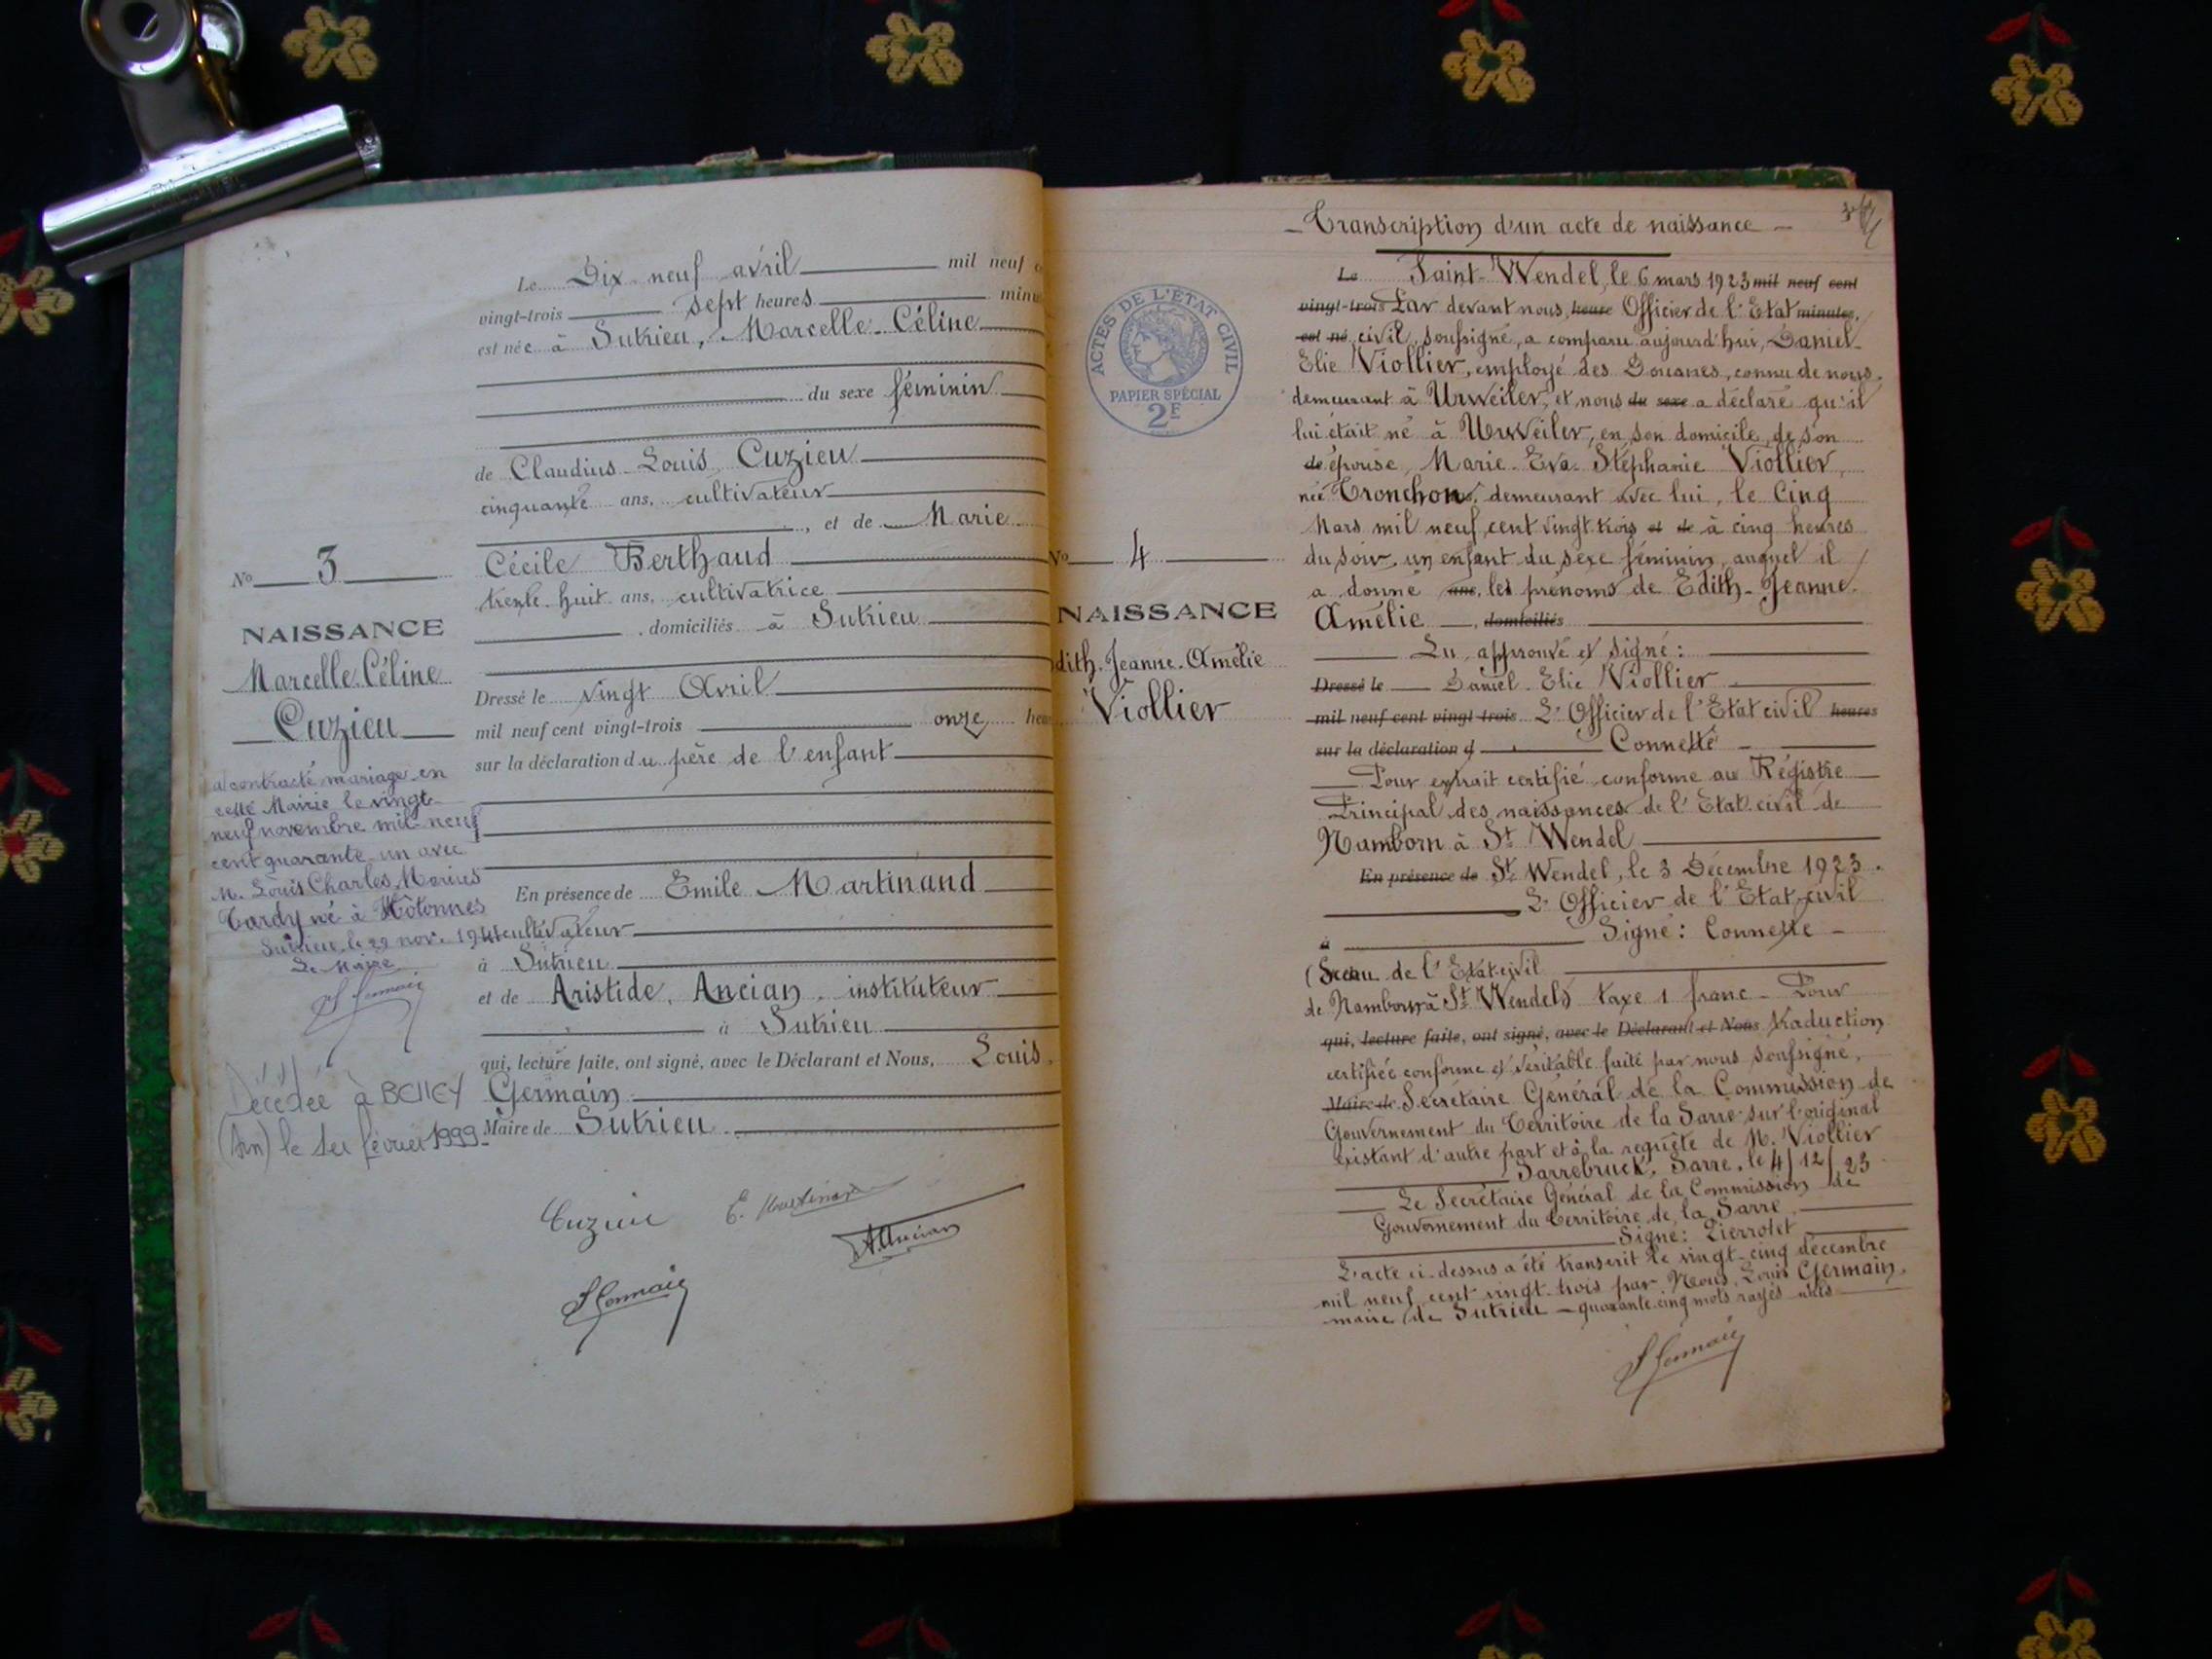 Le Dix neuf avril mil neuf
vingt-trois sept heures minu
est née à Sutrieu, Marcelle-Céline
du sexe féminin
de Claudius-Louis Cuzieu
cinquante ans, cultivateur
, et de Marie
Cécile Berthaud
trente huit ans, cultivatrice
, domiciliés à Sutrieu
Dressé le vingt Avril
mil neuf cent vingt-trois onze heu
sur la déclaration du père de l'enfant
En présence de Emile Martinand
cultivateur
à Sutrieu
et de Aristide, Ancian, instituteur
à Sutrieu
qui, lecture faite, ont signé, avec le Déclarant et Nous, Louis
Germain
Maire de Sutrieu
Cuzieu E. Martinand
A. Ancian
L Germain
No 3
NAISSANCE
Marcelle-Céline
Cuzieu
a contracté mariage en
cette Mairie le vingt-
neuf novembre mil-neuf
cent quarante un avec
M. Louis Charles Marius
Tardy né à Hôtonnes
Sutrieu, le 29 nov. 1941
Le Maire
L Germain
Décédée à BELLEY
(Ain) le 1er février 1999
Transcription d'un acte de naissance
Le Saint-Wendel, le 6 mars 1923 mil neuf cent
vingt-trois Par devant nous, heure Officier de l'Etat minutes,
est né civil, soussigné, a comparu aujourd'hui, Daniel-
Elie Viollier, employé des Douanes, connu de nous,
demeurant à Urweiler, et nous du sexe a déclaré qu'il
lui était né à Urweiler, en son domicile, de son
de épouse, Marie-Eva-Stéphanie Viollier,
née Tronchon, demeurant avec lui, le Cinq
Mars mil neuf cent vingt trois et de à cinq heures
du soir, un enfant du sexe féminin, auquel il
a donné ans, les prénoms de Edith-Jeanne-
Amélie, domiciliés
Lu, approuvé et signé:
Dressé le Daniel-Elie Viollier
mil neuf cent vingt-trois L'Officier de l'Etat civil heures
sur la déclaration d Connette
Pour extrait certifié conforme au Régistre
Principal des naissances de l'Etat-civil de
Namborn à St Wendel
En présence de St Wendel, le 3 Décembre 1923.
L'Officier de l'Etat-civil
à Signé: Connette
(Sceau de l'Etat-civil
de Namborn à St Wendel) taxe 1 franc - Pour
qui, lecture faite, ont signé, avec le Déclarant et Nous traduction
certifiée conforme et véritable faite par nous soussigné,
Maire de Secrétaire Général de la Commission de
Gouvernement du Territoire de la Sarre sur l'original
existant d'autre part et à la requête de M. Viollier
Sarrebruck, Sarre, le 4/12/23
Le Secrétaire Général de la Commission de
Gouvernement du Territoire de la Sarre
Signé: Pierrotet
L'acte ci-dessus a été transcrit le vingt-cinq décembre
mil neuf cent vingt-trois par Nous, Louis Germain,
maire de Sutrieu - quarante-cinq mots rayés nuls
L Germain
ACTES DE L'ETAT CIVIL
PAPIER SPÉCIAL
2F
No 4
NAISSANCE
dith-Jeanne-Amélie
Viollier